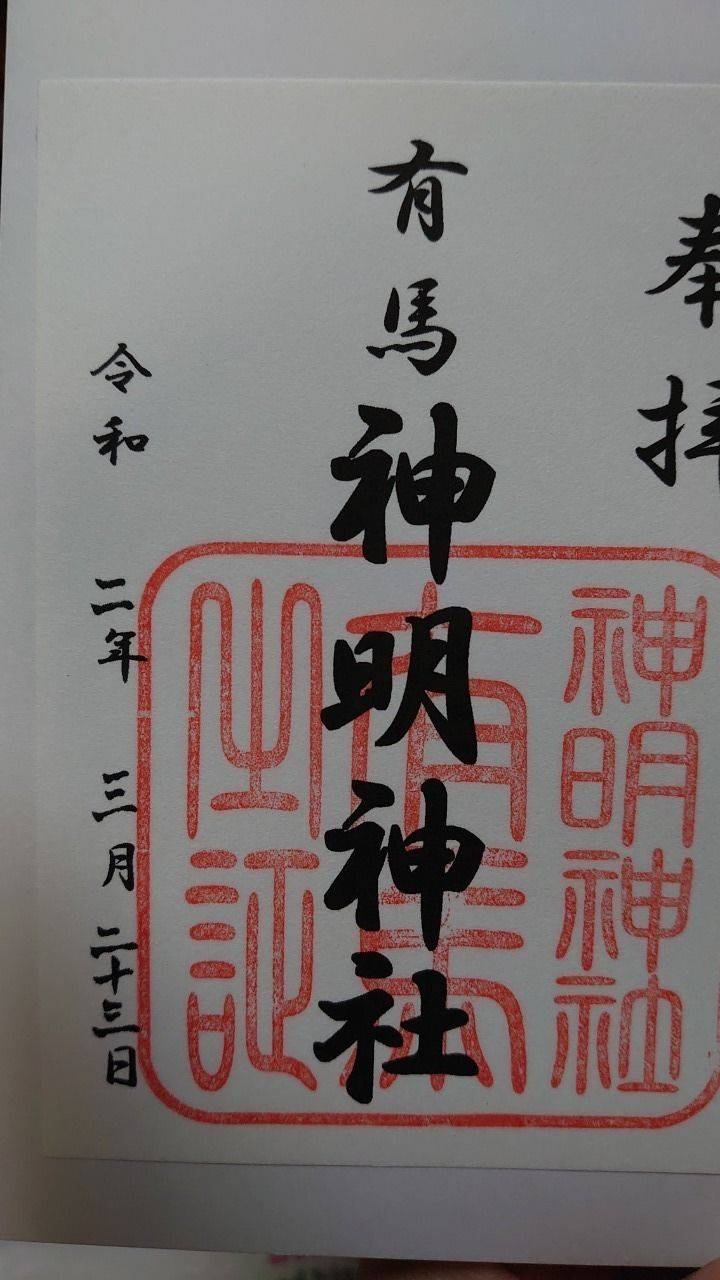 奉拝
有馬神明神社
令和二年三月二十三日
神明神社
有馬
之証